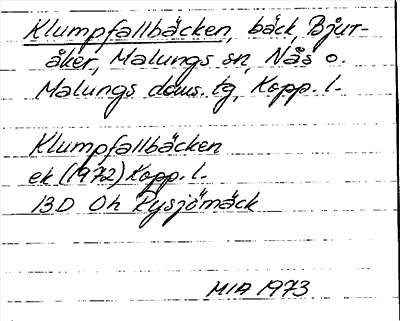 Klumpfallbäcken, bäck, Bjur-
åker, Malungs sn, Nås o.
Malungs doms. tg, Kopp. l.
Klumpfallbäcken
ek (1972) Kopp. l.
13D 0h Rysjömäck
MIA 1973